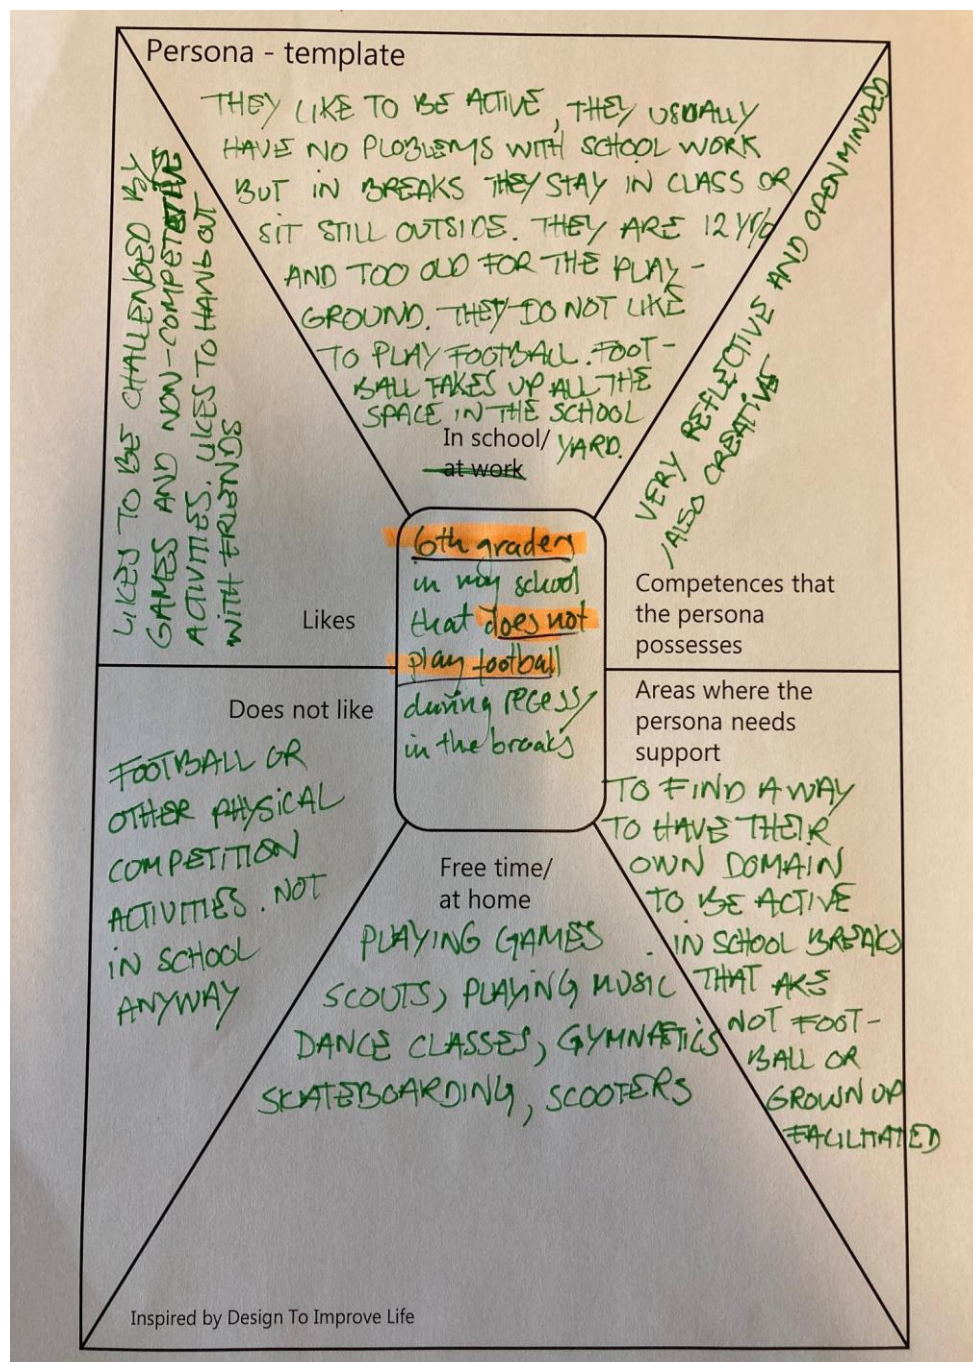 Persona - template
THEY LIKE TO BE ACTIVE, THEY USUALLY
HAVE NO PLOBLEMS WITH SCHOOL WORK
BUT IN BREAKS THEY STAY IN CLASS OR
SIT STILL OUTSIDE. THEY ARE 12 Y/O
AND TOO OLD FOR THE PLAY-
GROUND. THEY DO NOT LIKE
TO PLAY FOOTBALL. FOOT-
BALL TAKES UP ALL THE
SPACE IN THE SCHOOL
YARD.
In school/
at work
LIKES TO BE CHALLENGED BY
GAMES AND NON-COMPETETIVE
ACTIVITIES. LIKES TO HAND OUT
WITH FRIENDS
Likes
VERY REFLECTIVE AND OPENMINDED
/ALSO CREATIVE
Competences that
the persona
possesses
6th graders
in my school
that does not
play football
during recess/
in the breaks
Does not like
FOOTBALL OR
OTHER PHYSICAL
COMPETITION
ACTIVITIES. NOT
IN SCHOOL
ANYWAY
Areas where the
persona needs
support
TO FIND A WAY
TO HAVE THEIR
OWN DOMAIN
TO BE ACTIVE
IN SCHOOL BREAKS
THAT ARE
NOT FOOT-
BALL OR
GROWN UP
FACILITATED
Free time/
at home
PLAYING GAMES
SCOUTS, PLAYING MUSIC
DANCE CLASSES, GYMNASTICS
SKATEBOARDING, SCOOTERS
Inspired by Design To Improve Life